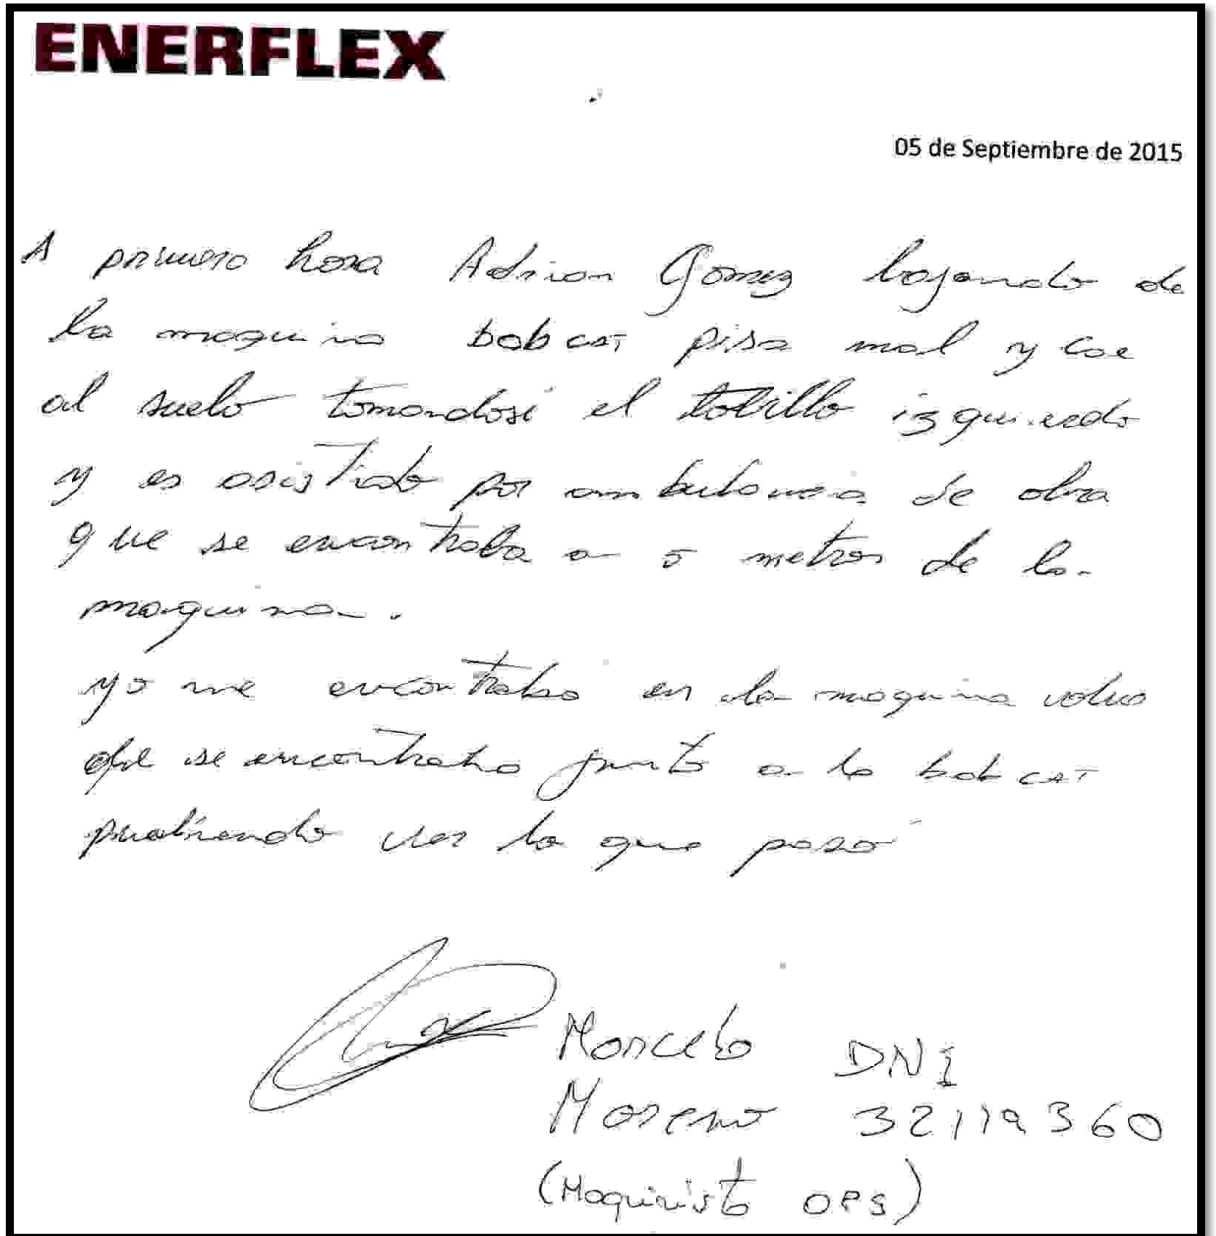 ENERFLEX
05 de Septiembre de 2015
A primera hora Adrian Gomez bajando de
la maquina bobcat pisa mal y cae
al suelo tomandose el tobillo izquierdo
y es asistido por ambulancia de obra
que se encontraba a 5 metros de la
maquina.
yo me encontraba en la maquina volvo
que se encontraba junto a la bobcat
pudiendo ver lo que pasó
Marcelo DNI
Moreno 32119360
(Maquinista OPS)